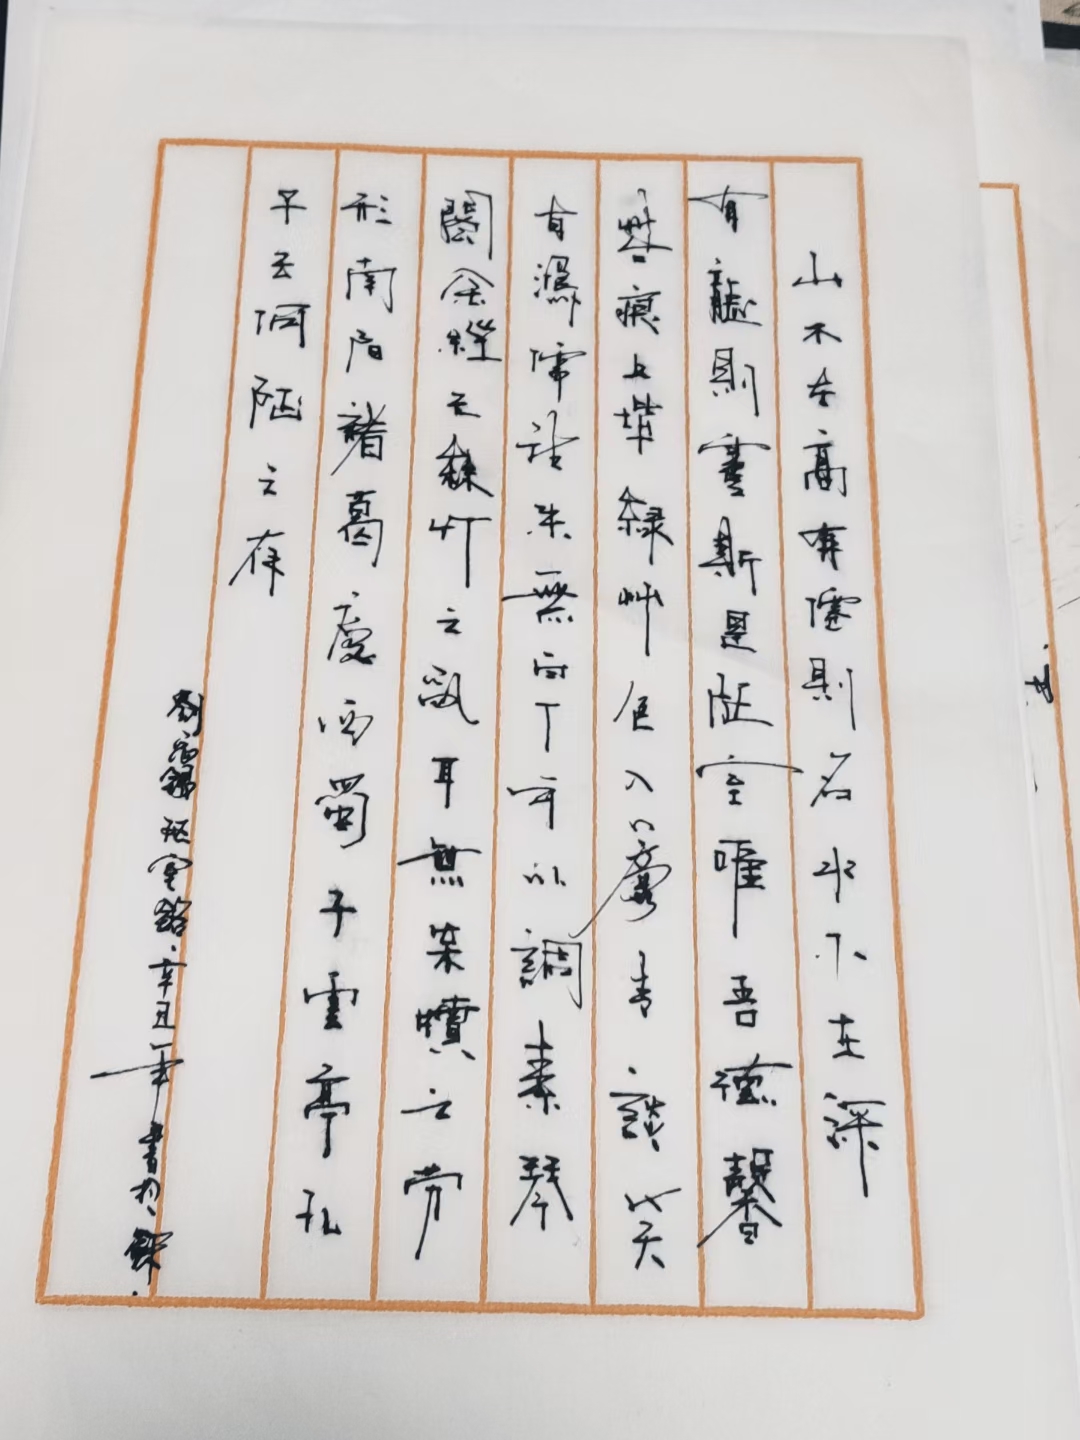 山不在高有僊則名水不在深
有龍則靈斯是陋室唯吾德馨
苔痕上堦綠艸色入簾青談笑
有鴻儒往来無白丁可以調素琴
閱金經无絲竹之亂耳無案牘之劳
形南阳諸葛廬西蜀子雲亭孔
子云何陋之有
劉禹錫陋室銘辛丑年書於